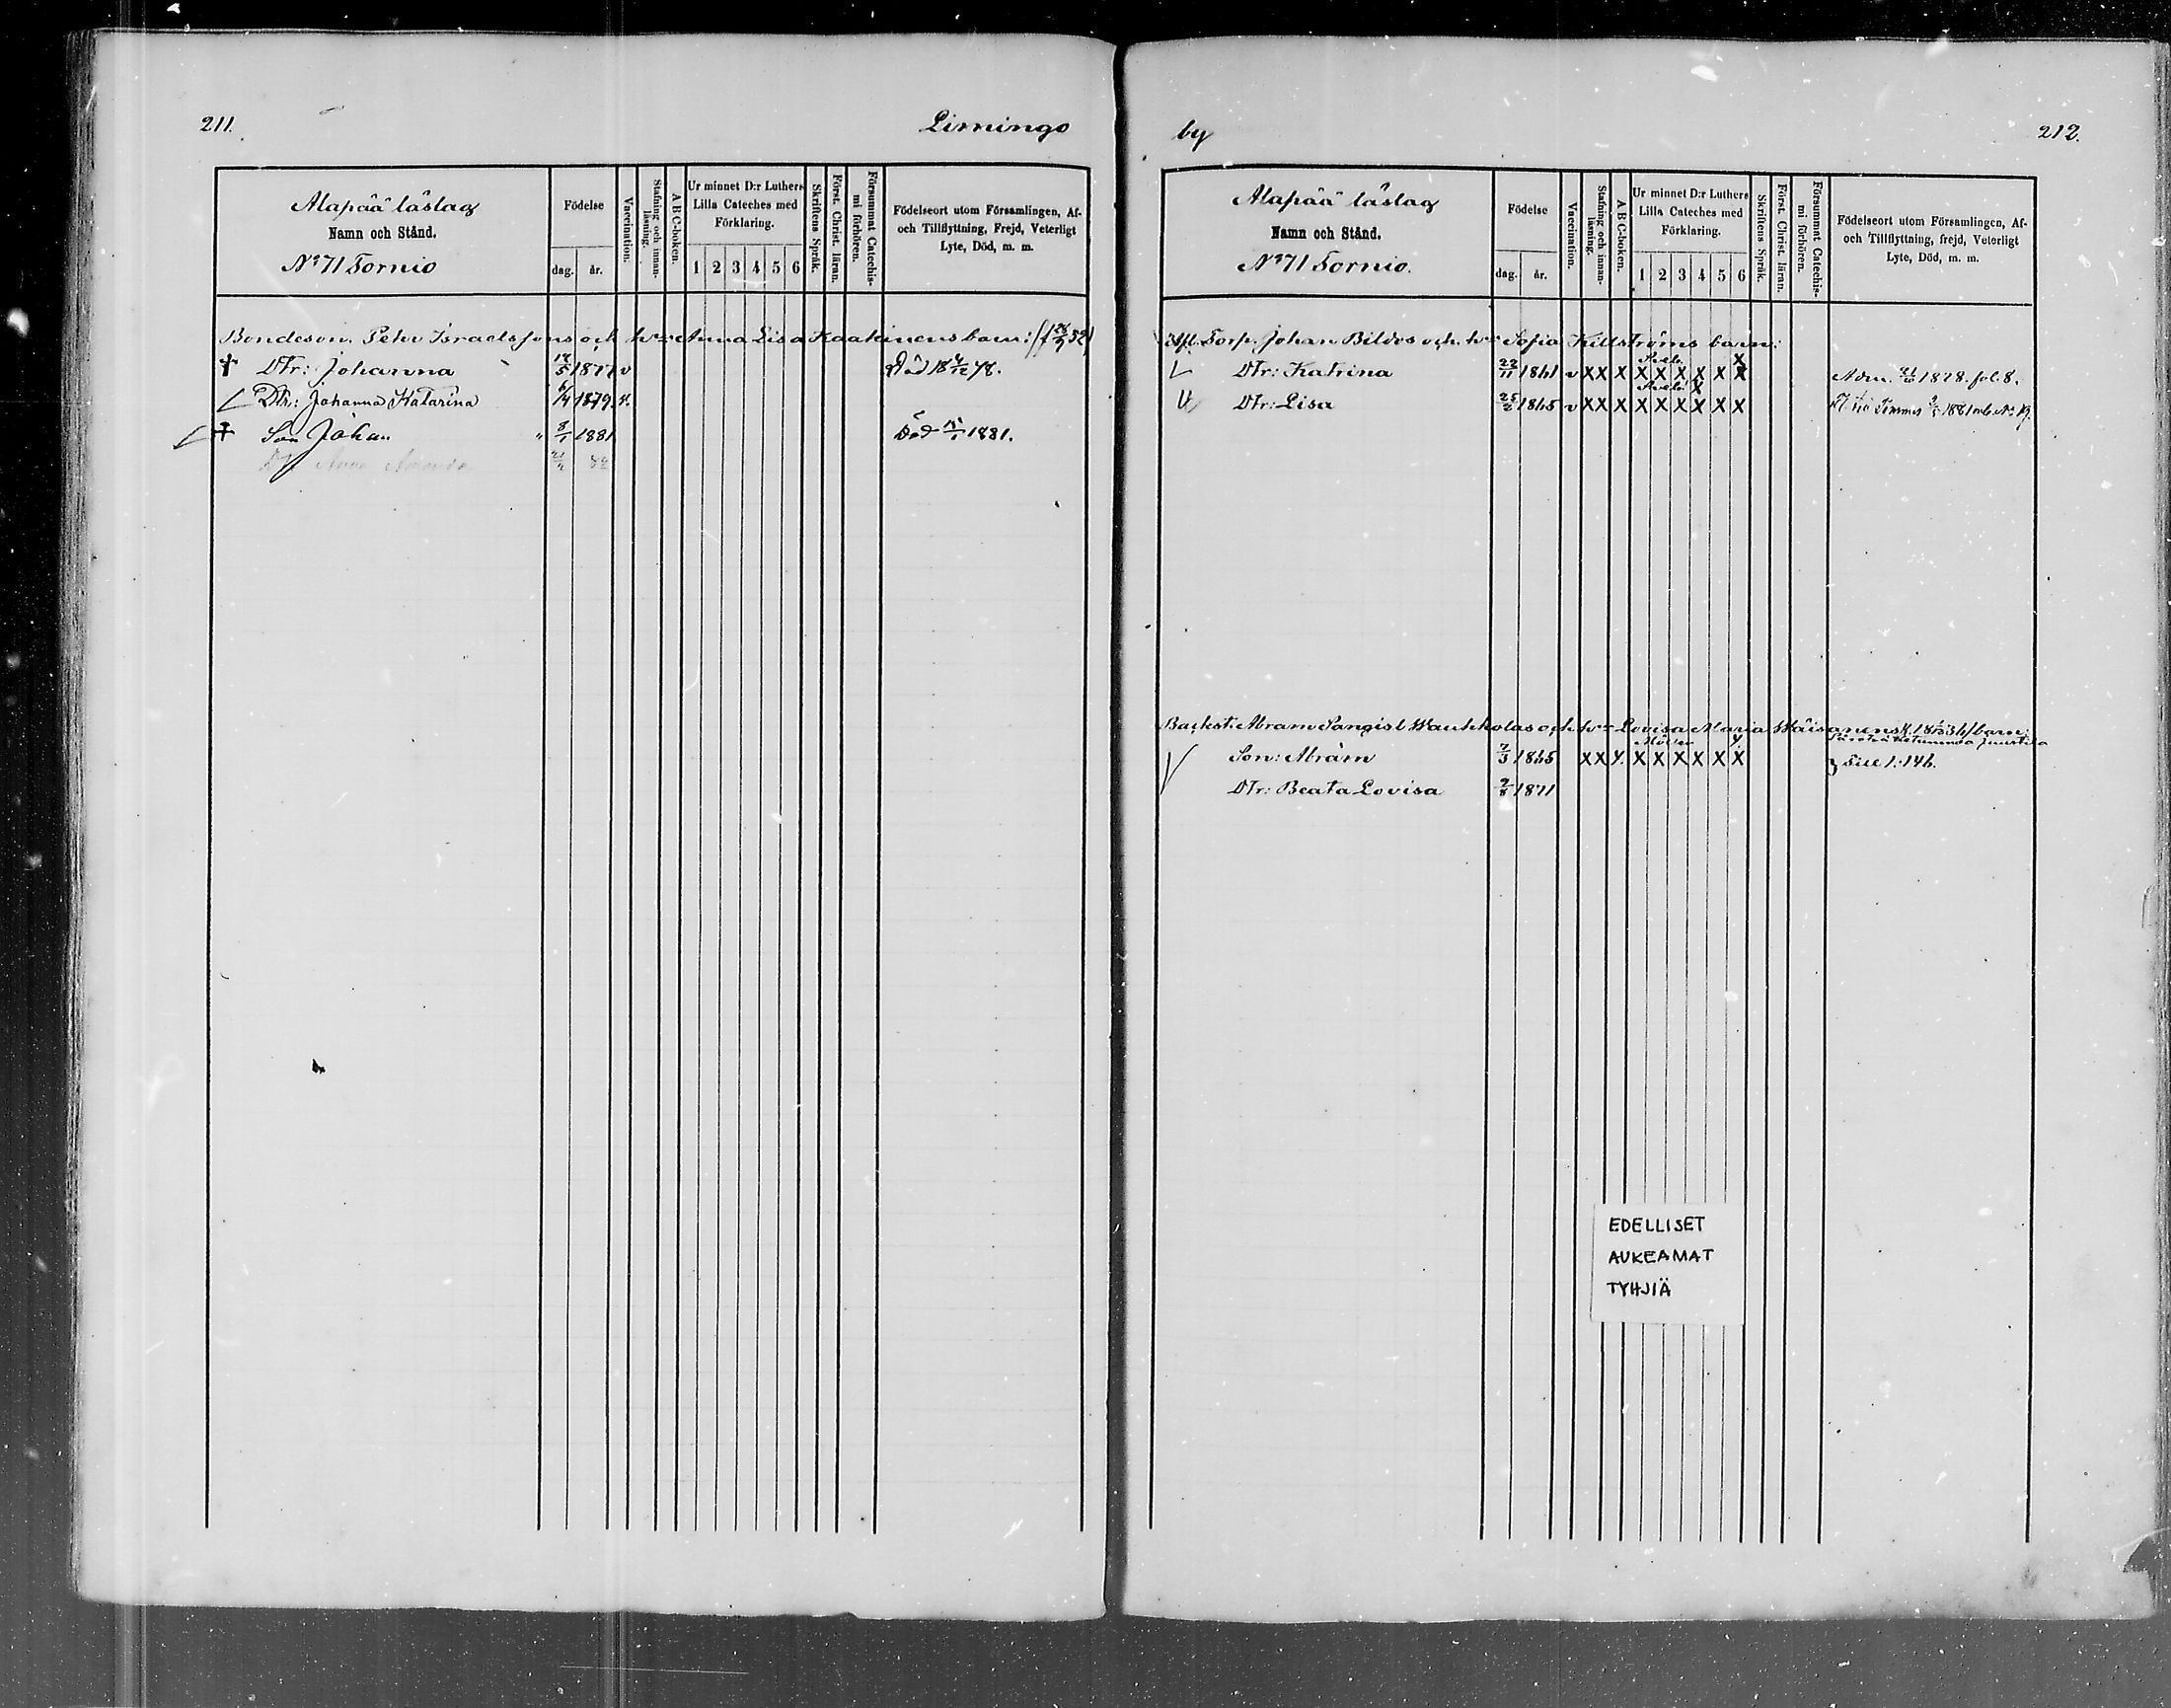 211.
Limingo
Alapää läslag
Namn och Stånd.
No 71 Tornio
Födelse
dag.
år.
Vaccination.
Stafning och innan-
läsning.
A B C-boken.
Ur minnet D:r Luthers
Lilla Cateches med
Förklaring.
1 2 3 4 5 6
Skriftens Språk.
Först. Christ. läran.
Försummat Catechis-
mi förhören.
Födelseort utom Församlingen, Af-
och Tillflyttning, Frejd, Veterligt
Lyte, Död, m. m.
Bondeson. Pehr Israelssons och h:s Anna Lisa Kaakinens barn:
† Dtr: Johanna 1877 v Död 18 4/12 78.
Dtr: Johanna Katarina 6/4 1879. v.
† Son Johan 8/1 1881 Död 15/1 1881.
Dtr Anna 82
by
212.
Alapää läslag
Namn och Stånd.
No 71 Tornio.
Födelse
dag.
år.
Vaccination.
Stafning och innan-
läsning.
A B C-boken.
Ur minnet D:r Luthers
Lilla Cateches med
Förklaring.
1 2 3 4 5 6
Skriftens Språk.
Först. Christ. läran.
Försummat Catechis-
mi förhören.
Födelseort utom Församlingen, Af-
och Tillflyttning, frejd, Veterligt
Lyte, Död, m. m.
Torp. Johan Bildos och h:s Sofia Killströms barn:
Dtr: Katrina 22/11 1861 v X X X X X X X X X Adm. 1878. fol. 8.
Dtr: Lisa 25/2 1865 v X X X X X X X X X 1881 No 19.
Backst: Abram Pangist Waukholas och h:s Lovisa Maria Wäisänens barn:
Son: Abram 7/3 1865 X X X X X X X X 1:146.
Dtr: Beata Lovisa 7/8 1871
EDELLISET
AUKEAMAT
TYHJIÄ